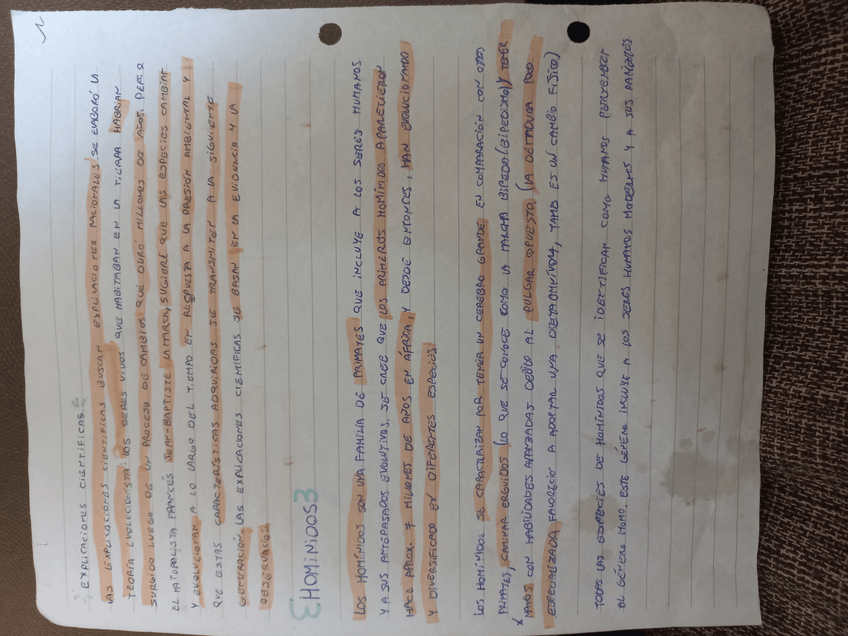 EXPLICACIONES CIENTÍFICAS:
LAS EXPLICACIONES CIENTÍFICAS BUSCAN EXPLICACIONES RACIONALES. SE ELABORÓ LA
TEORÍA EVOLUCIONISTA: LOS SERES VIVOS QUE HABITABAN EN LA TIERRA HABRÍAN
SURGIDO LUEGO DE UN PROCESO DE CAMBIOS QUE DURÓ MILLONES DE AÑOS. PERO
EL NATURALISTA FRANCÉS JEAN-BAPTISTE LAMARCK, SUGIERE QUE LAS ESPECIES CAMBIAN
Y EVOLUCIONAN A LO LARGO DEL TIEMPO EN RESPUESTA A LA PRESIÓN AMBIENTAL Y
QUE ESTAS CARACTERÍSTICAS ADQUIRIDAS SE TRANSMITEN A LA SIGUIENTE
GENERACIÓN. LAS EXPLICACIONES CIENTÍFICAS SE BASAN EN LA EVIDENCIA Y LA
OBSERVACIÓN
HOMÍNIDOS
LOS HOMÍNIDOS SON UNA FAMILIA DE PRIMATES QUE INCLUYE A LOS SERES HUMANOS
Y A SUS ANTEPASADOS EVOLUTIVOS. SE CREE QUE LOS PRIMEROS HOMÍNIDOS APARECIERON
HACE APROX. 7 MILLONES DE AÑOS EN ÁFRICA, Y DESDE ENTONCES, HAN EVOLUCIONADO
Y DIVERSIFICADO EN DIFERENTES ESPECIES.
LOS HOMÍNIDOS SE CARACTERIZAN POR TENER UN CEREBRO GRANDE EN COMPARACIÓN CON OTROS
PRIMATES, CAMINAR ERGUIDOS (LO QUE SE CONOCE COMO LA MARCHA BÍPEDA/BIPEDISMO) Y TENER
MANOS CON HABILIDADES AVANZADAS DEBIDO AL PULGAR OPUESTO. (LA DENTADURA POCO
ESPECIALIZADA FAVORECIÓ A ADOPTAR UNA DIETA OMNÍVORA, TAMB ES UN CAMBIO FÍSICO)
TODAS LAS ESPECIES DE HOMÍNIDOS QUE SE IDENTIFICAN COMO HUMANOS PERTENECEN
AL GÉNERO HOMO. ESTE GÉNERO INCLUYE A LOS SERES HUMANOS MODERNOS Y A SUS PARIENTES